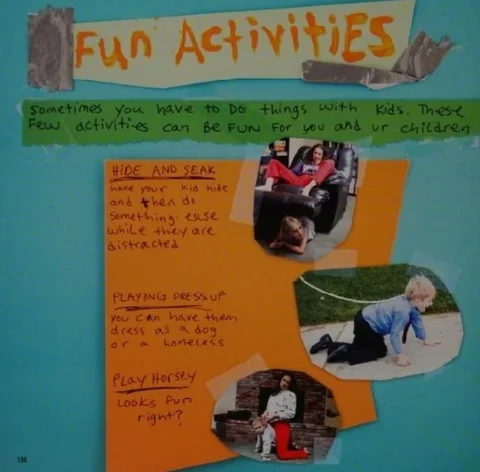 Fun Activities
Sometimes you have to do things with kids. These
few activities can be fun for you and ur children
HIDE AND SEAK
have your kid hide
and then do
something esse
while they are
distracted
PLAYING DRESS UP
you can have them
dress as a dog
or a homeless
PLAY HORSEY
Looks fun
right?
186